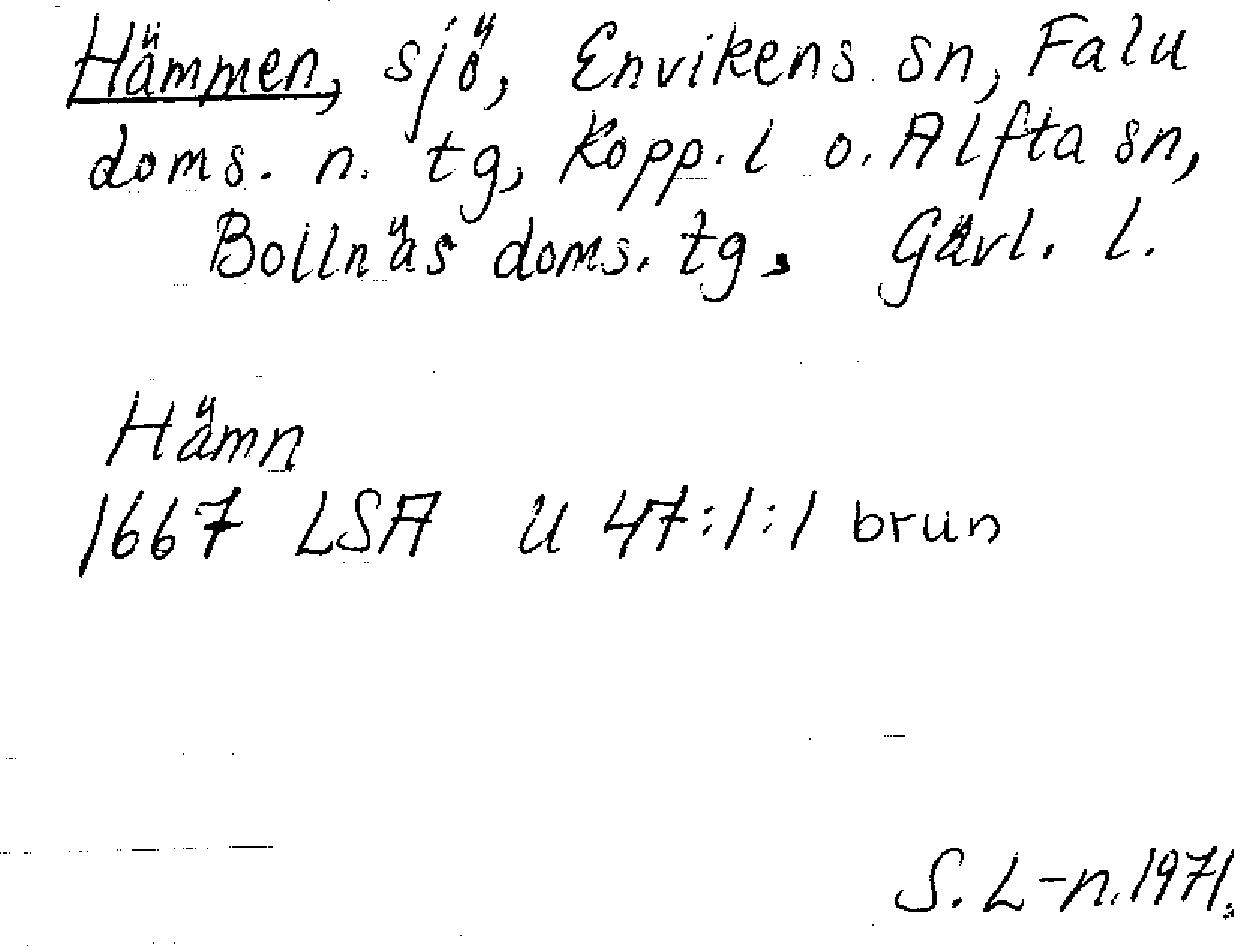 Hämmen, sjö, Envikens sn, Falu
doms. n. tg, Kopp. l o. Alfta sn,
Bollnäs doms. tg, Gävl. l.
Hämn
1667 LSA U 47:1:1 brun
S. L-n. 1971.